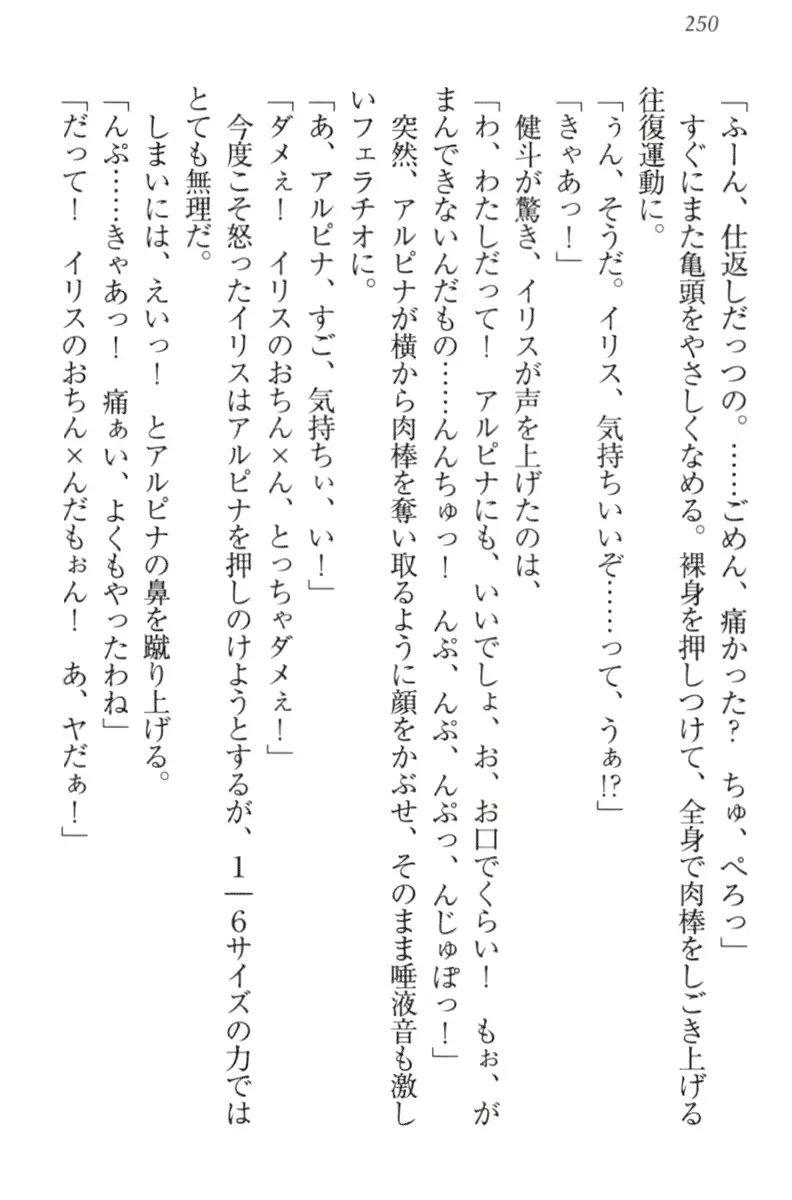 250
「ふーん、仕返しだっつの。……ごめん、痛かった？　ちゅ、ぺろっ」
すぐにまた亀頭をやさしくなめる。裸身を押しつけて、全身で肉棒をしごき上げる
往復運動に。
「ぅん、そうだ。イリス、気持ちいいぞ……って、うぁ!?」
「きゃあっ！」
健斗が驚き、イリスが声を上げたのは、
「わ、わたしだって！　アルピナにも、いいでしょ、お、お口でくらい！　もぉ、が
まんできないんだもの……んんちゅっ！　んぷ、んぷ、んぷっ、んじゅぽっ！」
突然、アルピナが横から肉棒を奪い取るように顔をかぶせ、そのまま唾液音も激し
いフェラチオに。
「あ、アルピナ、すご、気持ちぃ、い！」
「ダメぇ！　イリスのおちん×ん、とっちゃダメぇ！」
今度こそ怒ったイリスはアルピナを押しのけようとするが、１―６サイズの力では
とても無理だ。
しまいには、えいっ！　とアルピナの鼻を蹴り上げる。
「んぷ……きゃあっ！　痛ぁい、よくもやったわね」
「だって！　イリスのおちん×んだもぉん！　あ、ヤだぁ！」